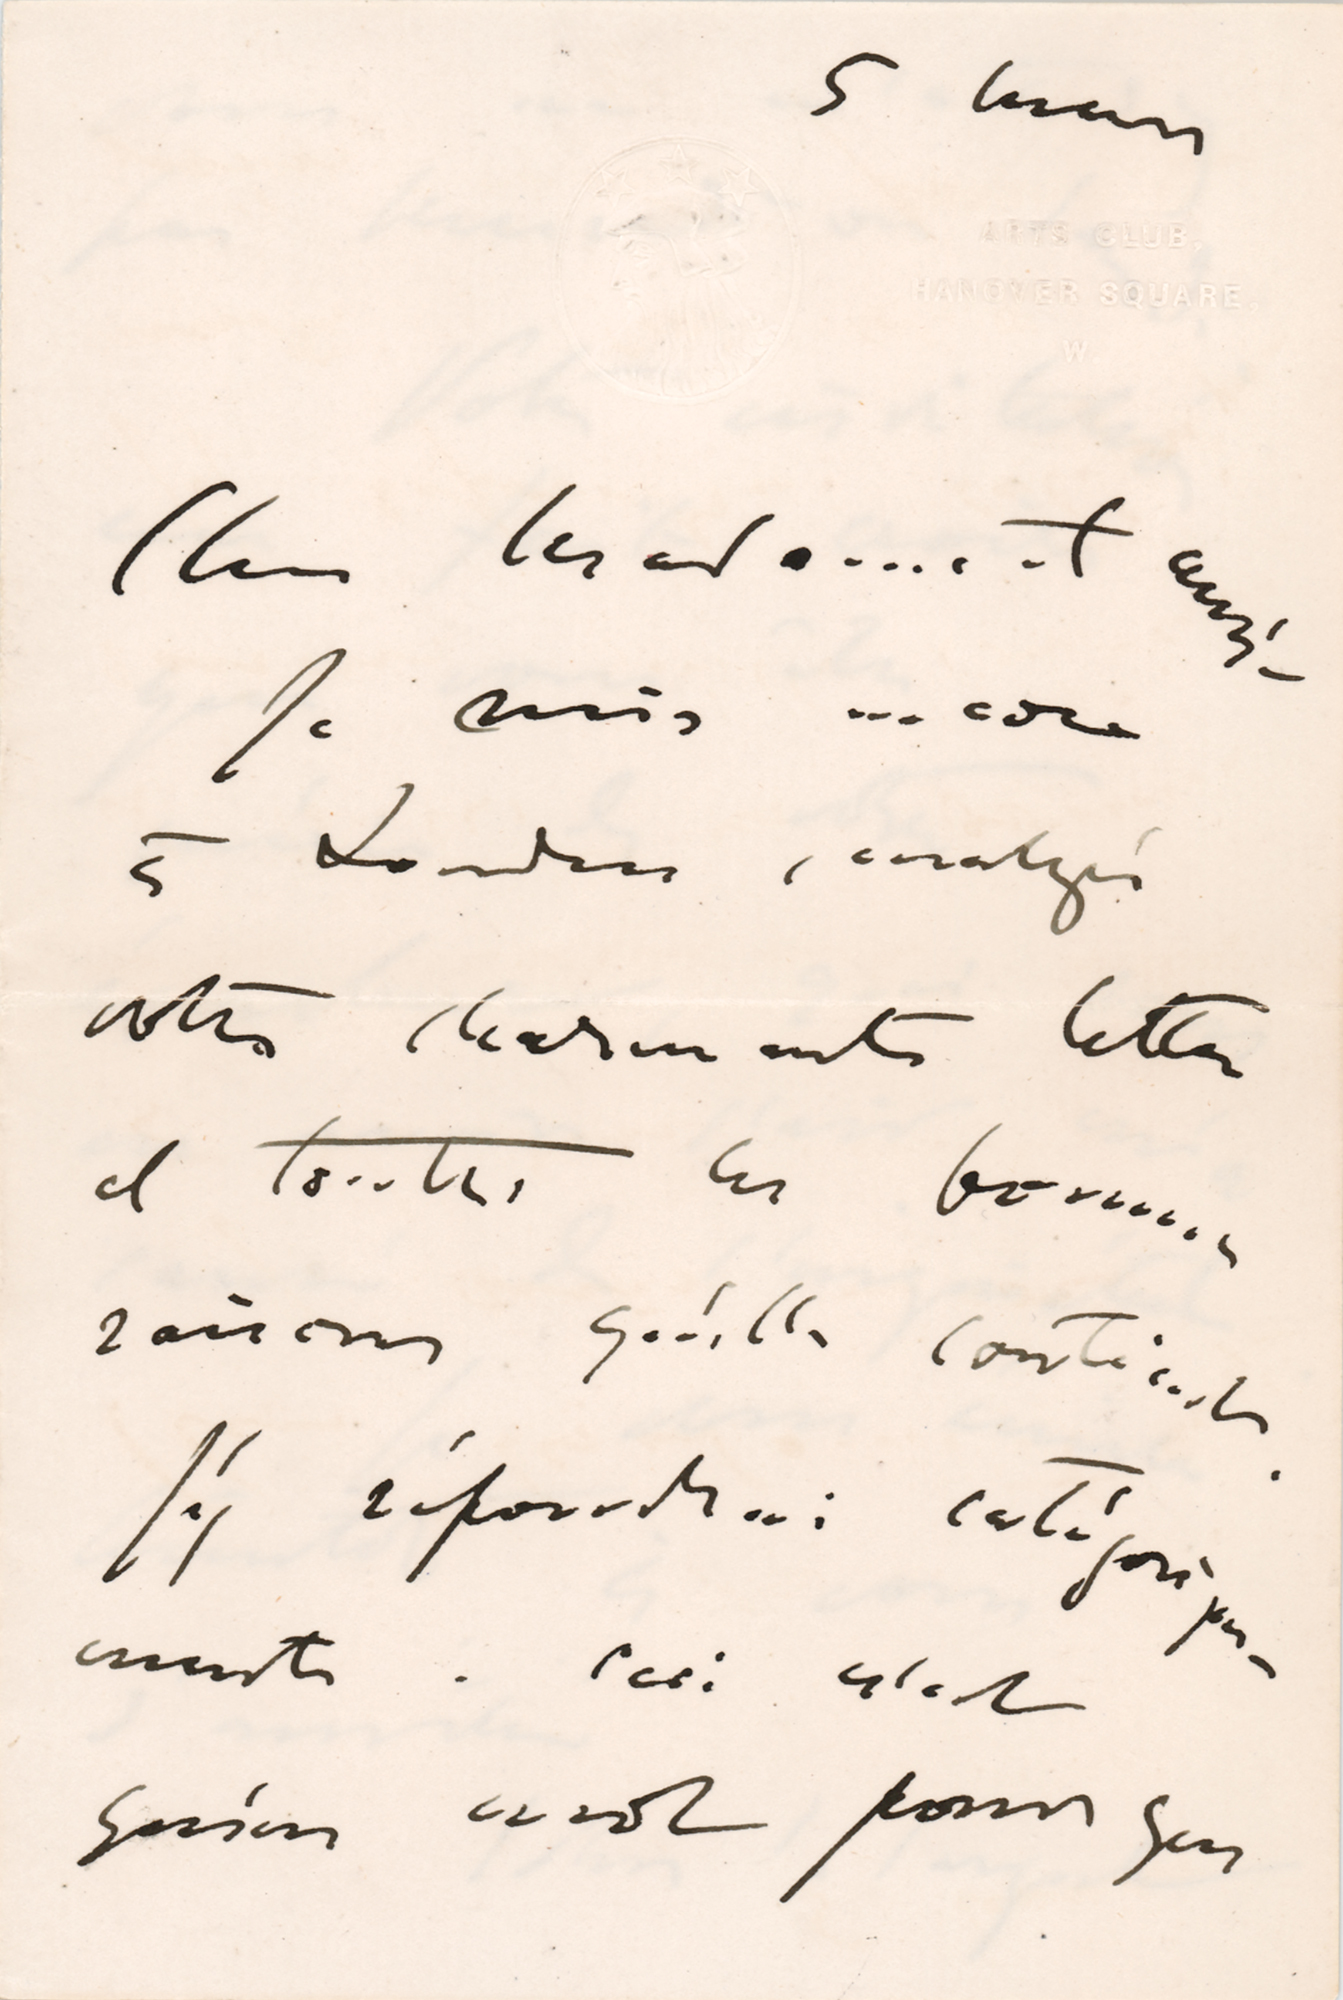 5 mars
ARTS CLUB,
HANOVER SQUARE,
W.
Chère Madame et amie
Je suis encore
à Londres, malgré
votre charmante lettre
et toutes les bonnes
raisons qu'elle contient.
J'y répondrai catégorique-
ment. Ceci n'est
qu'un mot pour que